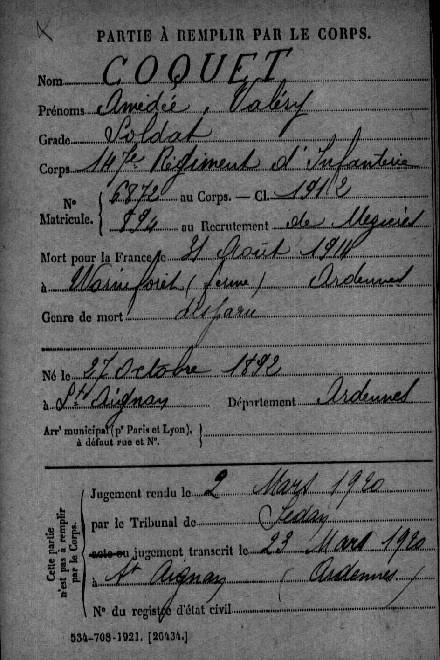 PARTIE À REMPLIR PAR LE CORPS.
Nom COQUET
Prénoms Amédée, Valéry
Grade Soldat
Corps 147e Régiment d'Infanterie
N° Matricule. { 6872 au Corps. — Cl. 1912
894 au Recrutement de Mézières
Mort pour la France le 31 Août 1914
à (ferme) Ardennes
Genre de mort disparu
Né le 27 Octobre 1892
à St Aignan Département Ardennes
Arrt municipal (pr Paris et Lyon),
à défaut rue et N°.
Cette partie n'est pas à remplir par le Corps.
Jugement rendu le 2 Mars 1920
par le Tribunal de Sedan
acte ou jugement transcrit le 23 Mars 1920
à St Aignan (Ardennes)
N° du registre d'état civil
534-708-1921. [26434.]